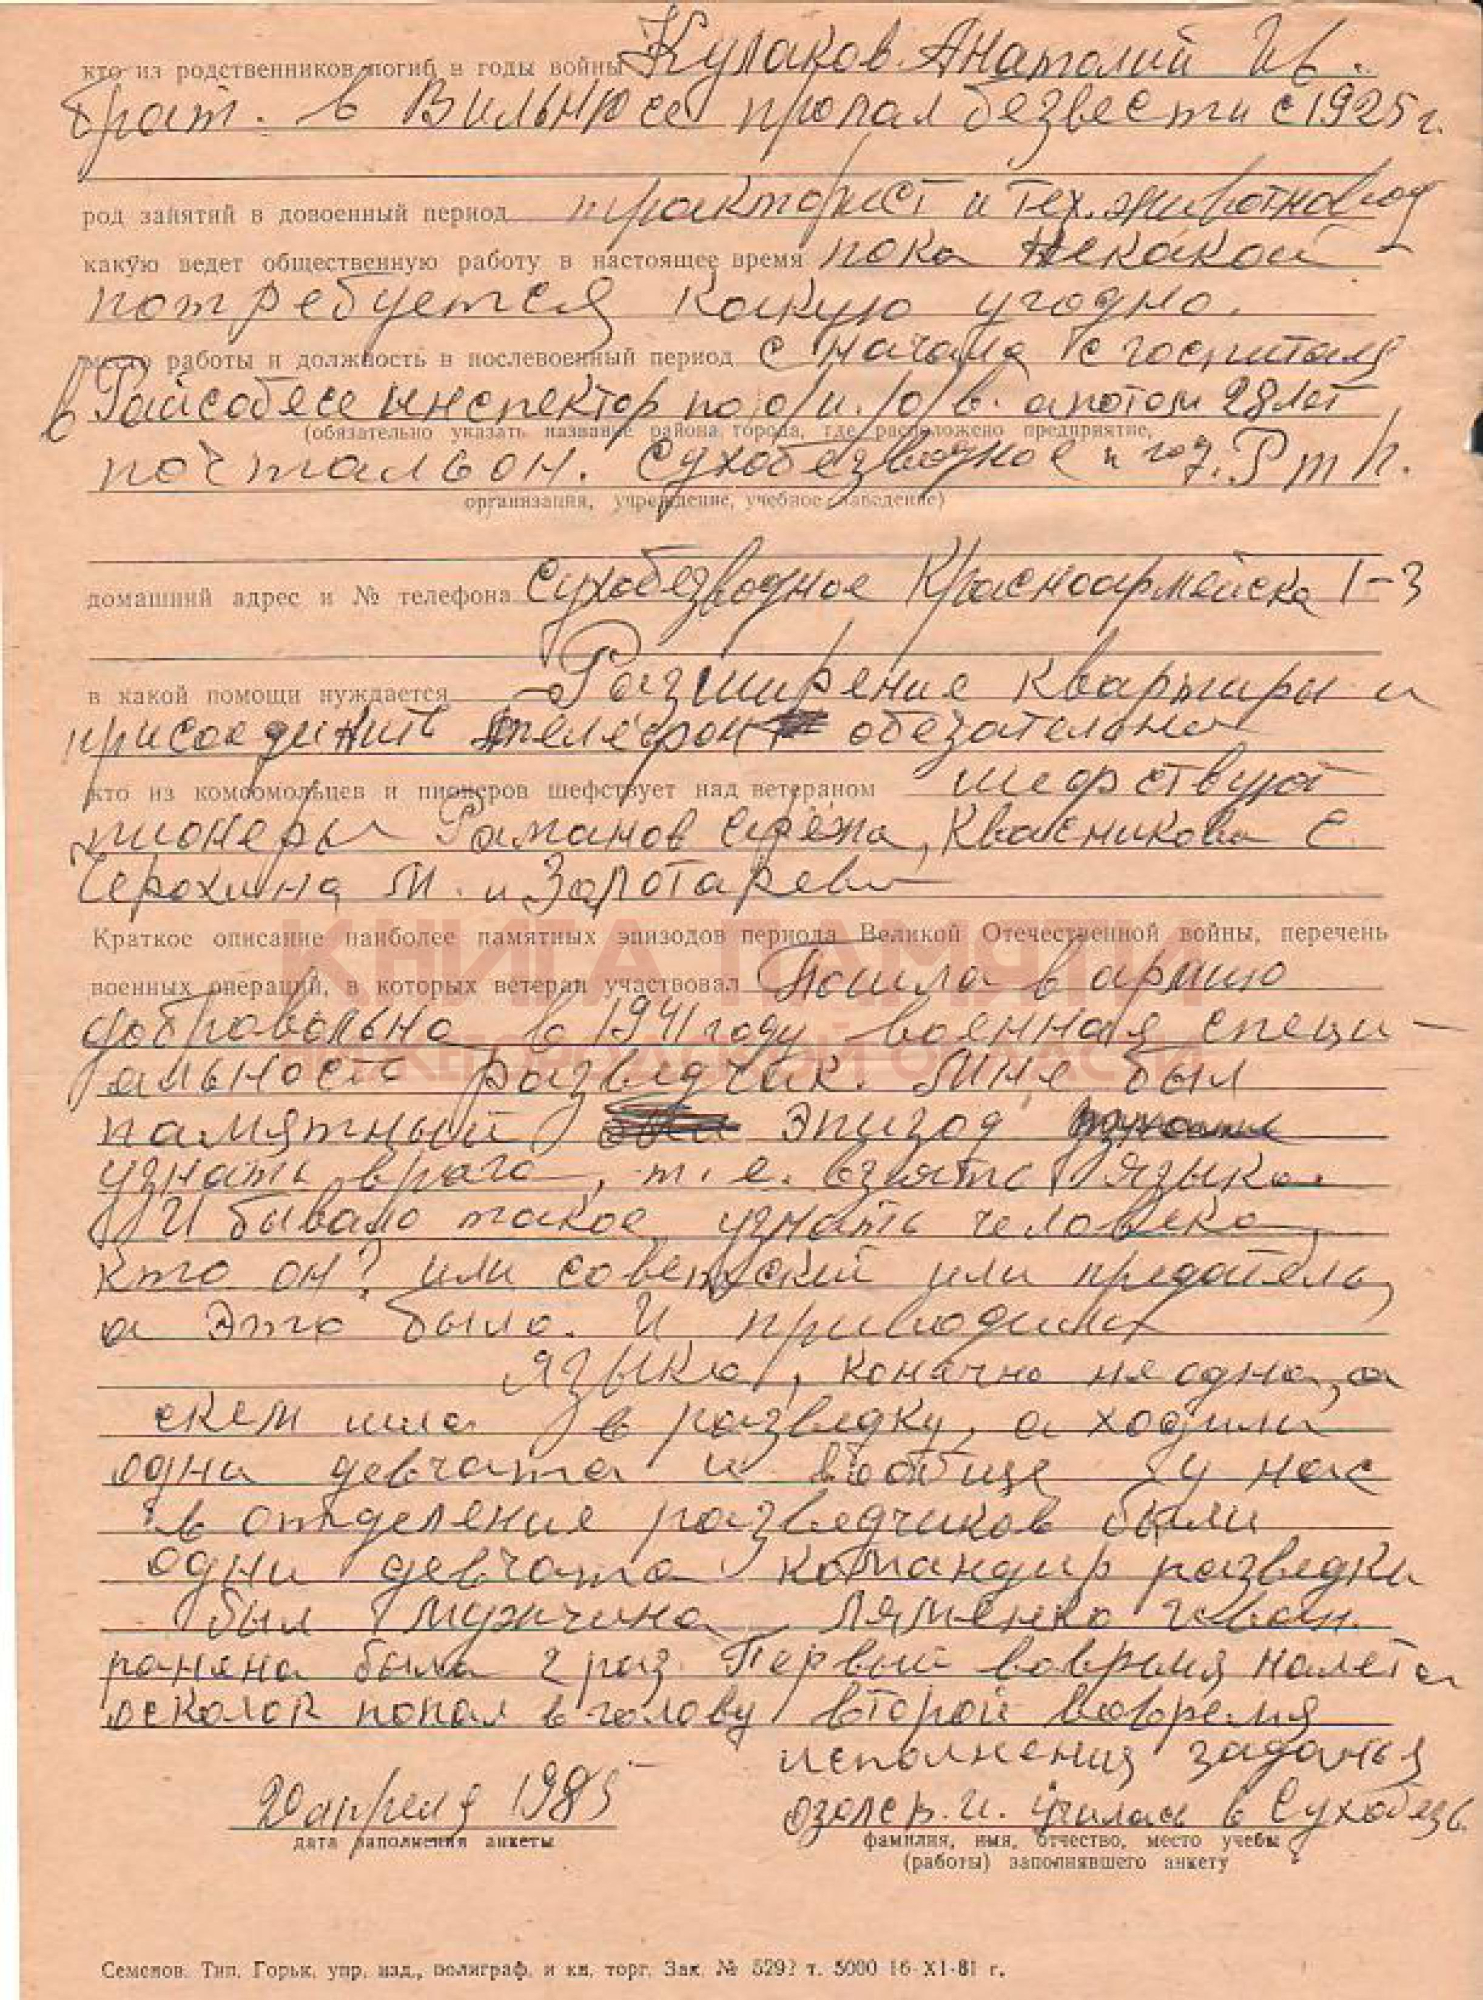 кто из родственников погиб в годы войны Кулаков Анатолий Ив.
брат. в Вильнюсе пропал безвести с 1925 г.
род занятий в довоенный период тракторист и тех. животновод
какую ведет общественную работу в настоящее время пока некакой
потребуется какую угодно.
место работы и должность в послевоенный период с начала с госпиталя
в Райсобесе инспектор по о/и./о/в. а потом 28 лет
(обязательно указать название района, города, где расположено предприятие,
почтальон. Сухобезводное
организация, учреждение, учебное заведение)
домашний адрес и № телефона Сухобезводное Красноармейска 1-3
в какой помощи нуждается Розширение квартиры и
присоединить телефон обезательно
кто из комсомольцев и пионеров шефствует над ветераном шефствуют
пионеры Раманов Серёжа, Квасникова С.
Черохина М. и Золотарева
КНИГА ПАМЯТИ
Краткое описание наиболее памятных эпизодов периода Великой Отечественной войны, перечень
военных операций, в которых ветеран участвовал Пошла в армию
добровольно в 1941 году военная специ-
НИЖЕГОРОДСКОЙ ОБЛАСТИ
альность разведчик. Мне был
памятный эпизод
узнать врага, т. е. взять языка.
И бывало такое узнать человека,
кто он? или советский или предатель,
а это было. И приводила
языка, конечно не одна, а
скем шла в разведку, а ходили
одни девчата и вообще у нас
в отделение разведчиков были
одни девчата командир разведки
был мужчина Ляменко Иван.
ранена была 2 раз. Первый вовремя налёта
осколок попал в голову второй вовремя
исполнения заданья
20 апреля 1985 Озолс р. и. Училась в Сухобезв.
дата заполнения анкеты
фамилия, имя, отчество, место учебы
(работы) заполнявшего анкету
Семенов. Тип. Горьк. упр. изд., полиграф. и кн. торг. Зак. № 5292 т. 5000 16-XI-81 г.